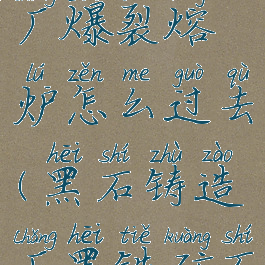 厂爆裂熔
lú zěn me guò qù
炉怎么过去
hēi shí zhù zào
(黑石铸造
chǎng hēi tiě kuàng shí
厂黑铁矿石